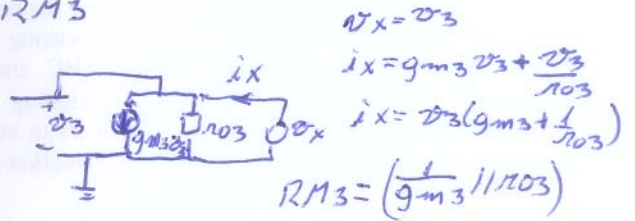 RM3
vx = v3
ix = gm3 v3 + v3/ro3
ix = v3(gm3 + 1/ro3)
RM3 = (1/gm3 // ro3)
ix
+
v3
-
gm3v3
ro3
vx